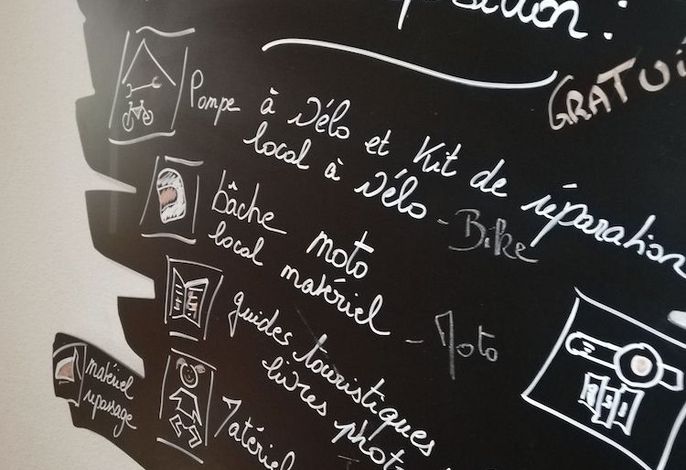 GRATUI
Pompe à vélo et Kit de réparation
local à vélo - Bike
bâche moto
local matériel - Moto
guides touristiques
livres phot
matériel
repassage
Matériel